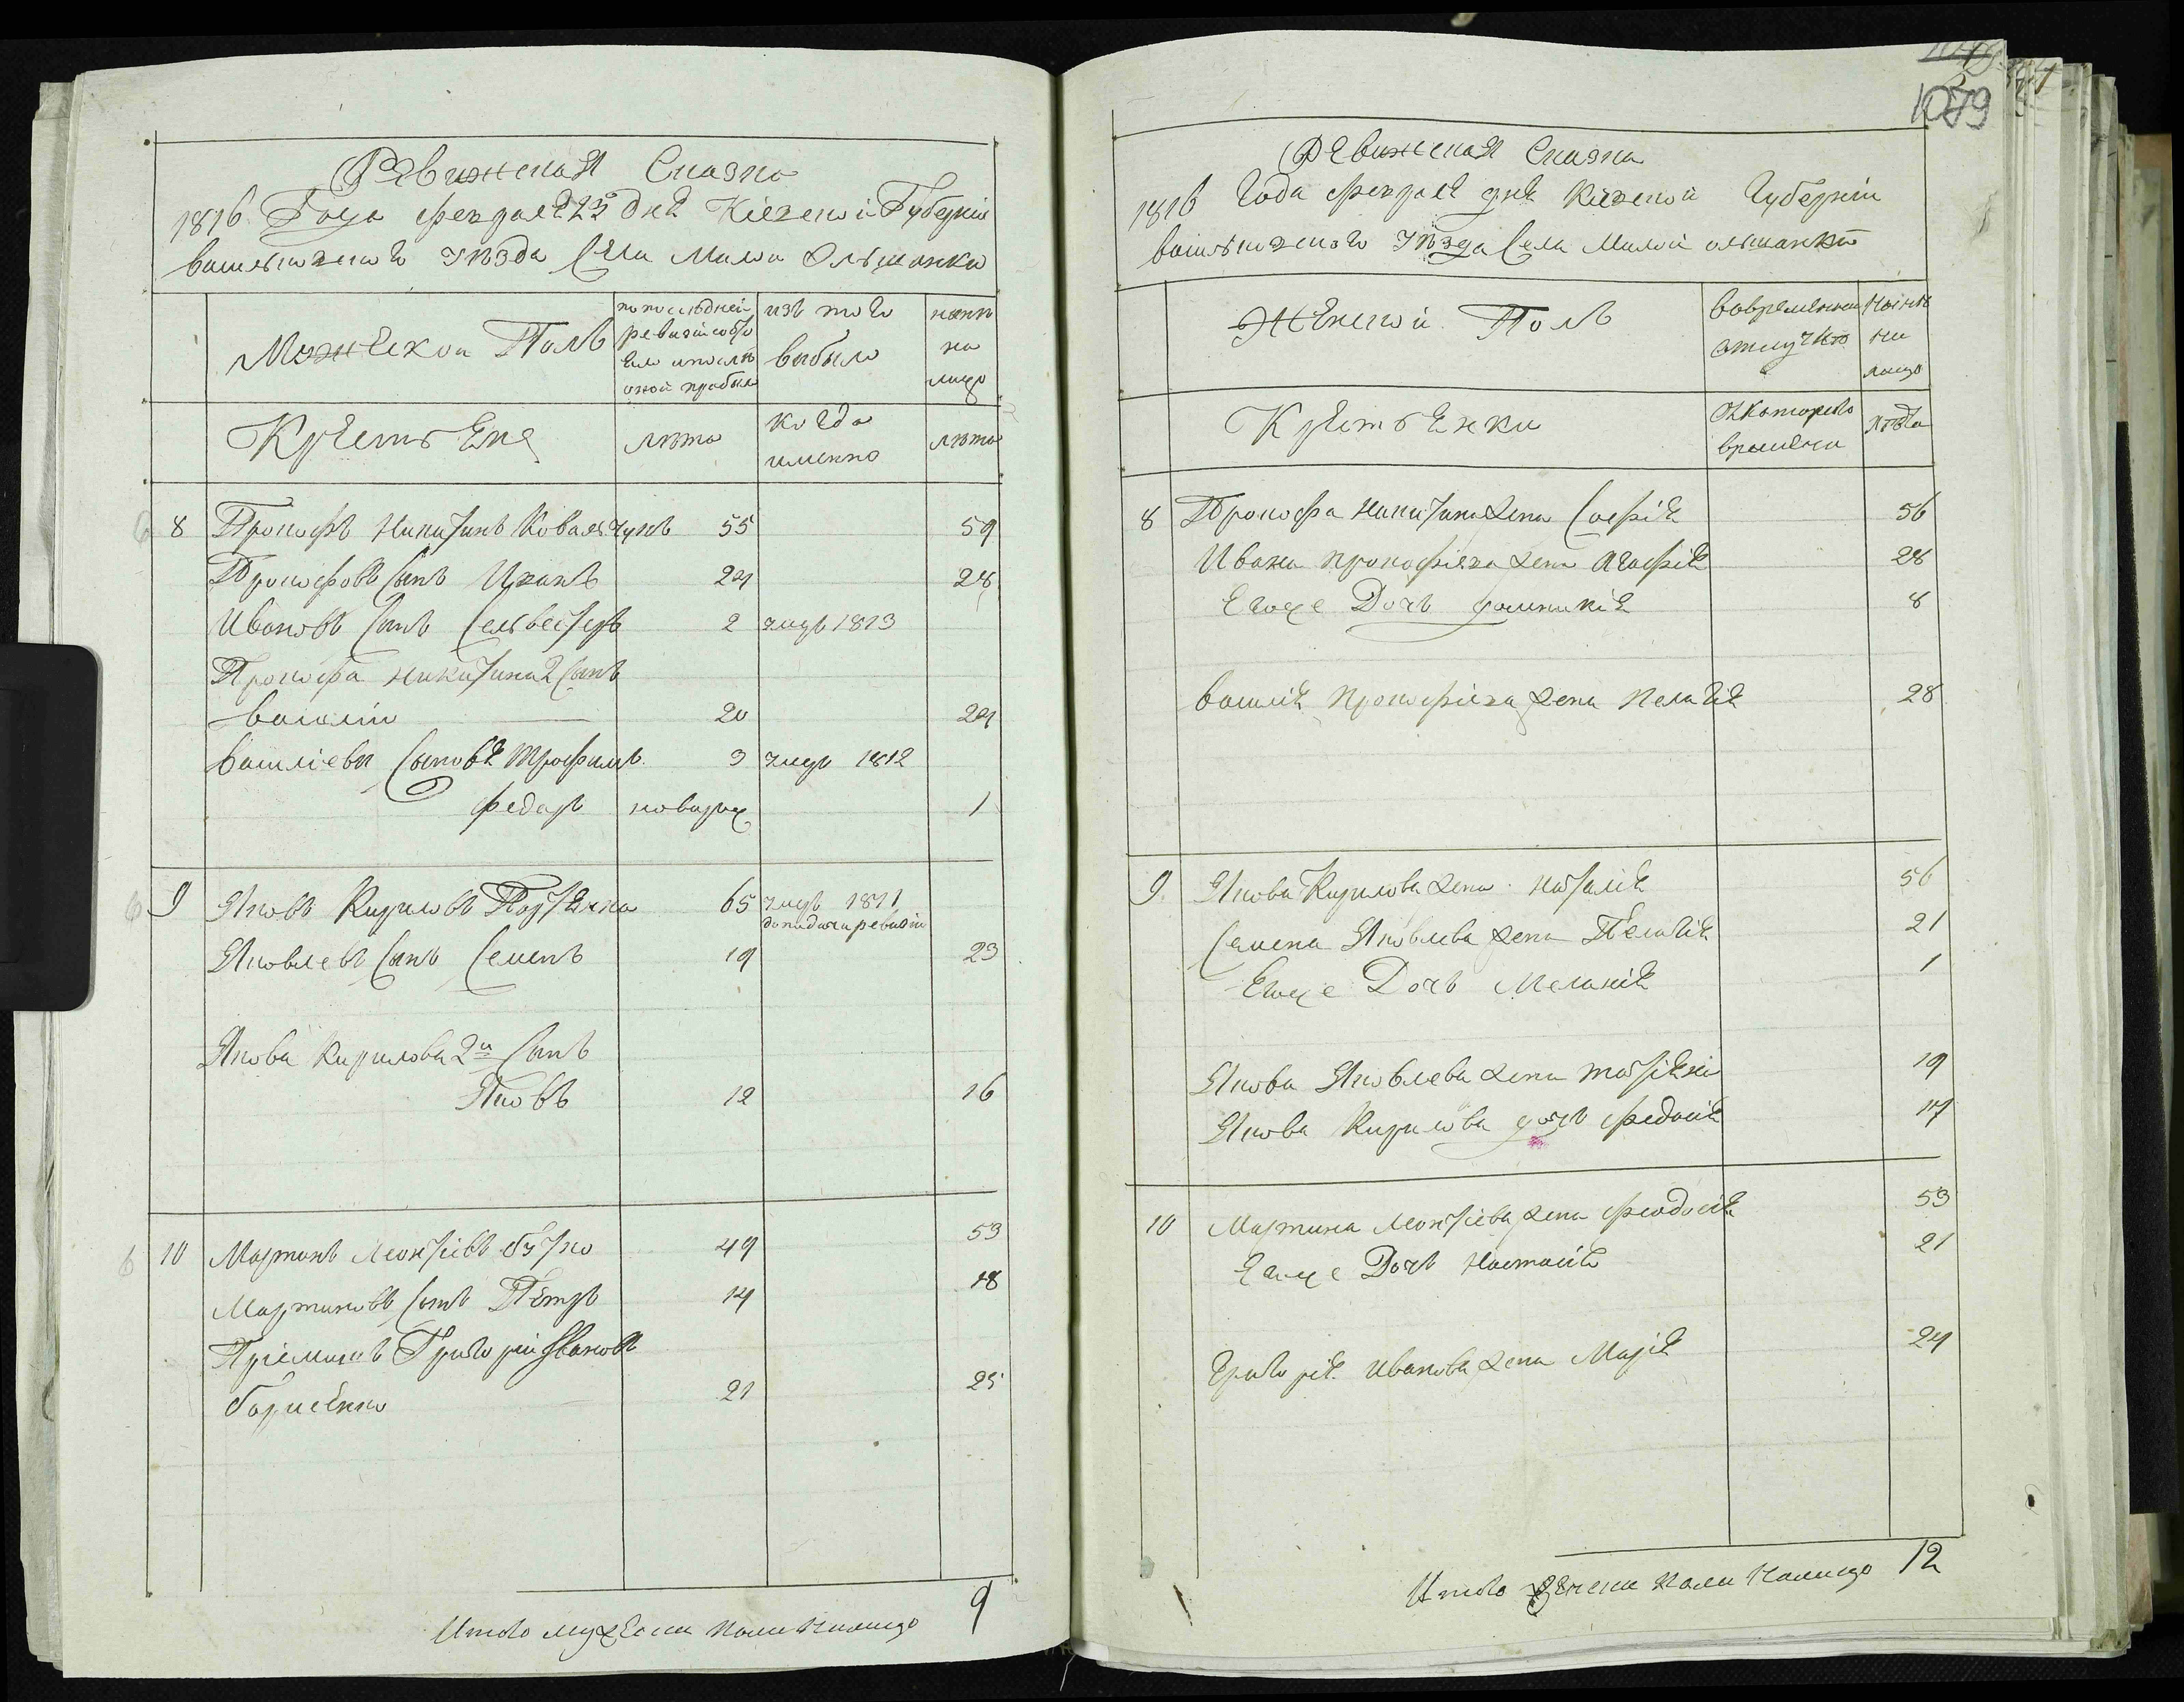 Ревижская Сказка
1816 Года февраля 25 дня Кіевской Губерніи
васильковского уѣзда Села Малой Ольшанки
Мужеской Полъ
по последней
ревизіи состо
яло и после
оной прибыло
изъ того
выбыло
ныне
на
лицо
Крестьяне
лѣта
когда
именно
лѣта
8 Прокофъ Никитинъ Ковальчукъ 55 59
Прокофовъ Сынъ Иванъ 24 28
Ивановъ Сынъ Сельвестръ 2 умръ 1813
Прокофа никитина 2 Сынъ
василіи 20 24
василіевы Сыновя трофимъ 3 умръ 1812
федоръ новорож 1
9 Яковъ Кириловъ 65 умръ 1811
до подачи ревизіи
Яковлевъ Сынъ Семенъ 19 23
Якова Кирилова 2й Сынъ
Яковъ 12 16
10 Мартинъ Леонтіевъ 49 53
Мартиновъ Сынъ Петръ 14 18
Пріймакъ Григоріи Ивановъ
борисенко 21 25
Итого мужеска пола налицо 9
1079
Ревижская Сказка
1816 Года февраля дня Кіевской Губерніи
васильковского уѣзда Села Малой ольшанки
Женской Полъ
Вовременной
отлучке
Ныне
на
лицо
Крестьянки
Скоторого
времени
лѣта
8 Прокофа Никитина жена Софія 56
Ивана прокофіева жена Агафія 28
Егоже Дочь домникія 8
василія прокофіева жена Пелагія 28
9 Якова Кирилова жена наталія 56
Семена Яковлева жена Пелагія 21
Егоже Дочь Меланія 1
Якова Яковлева жена 19
Якова Кирилова дочь федосія 17
10 Мартина Леонтіева жена феодосія 53
Егоже Дочь Настасія 21
Григорія Иванова жена Марія 24
Итого женска пола Налицо 12